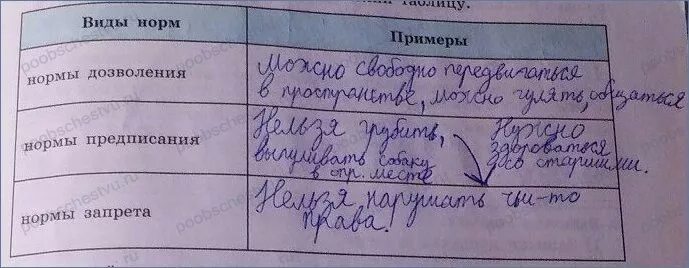 таблицу.
Виды норм
Примеры
нормы дозволения
Можно свободно передвигаться
в пространстве, можно гулять, общаться
нормы предписания
Нельзя грубить,
выгуливать собаку
в опр. месте
Нужно
здороваться
со старшими.
нормы запрета
Нельзя нарушать чьи-то
права.
poobschestvu.ru